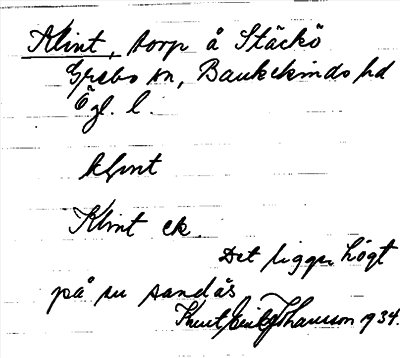 Klint, torp å Stäckö
Grebo sn, Bankekinds hd
Ögl. l.
klınt
Klint ek.
Det ligger högt
på en sandås
Knut Johansson 1934.